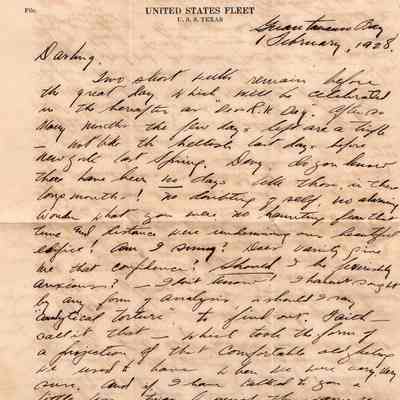 File.
UNITED STATES FLEET
U. S. S. TEXAS
Guantanamo Bay
1 February, 1928.
Darling,
Two short weeks remain before
the great day which will be celebrated
in the hereafter as " Day". After so
many months the few days left are a trifle
— not like the hellish last days before
New York last Spring. Dany do you know
there have been no days like those in these
long months! no doubting of self, no alarming
wonder what you were, no haunting fear that
time and distance were undermining our beautiful
edifice! Am I smug? Does vanity give
me that confidence? Should I be feverishly
anxious? — I don't know. I haven't sought
by any form of analysis or should I say
"analytical torture" to find out. Faith —
call it that — which took the form of
a projection of that comfortable
we used to have when we were very, very
sure. And if I have talked to you a
little